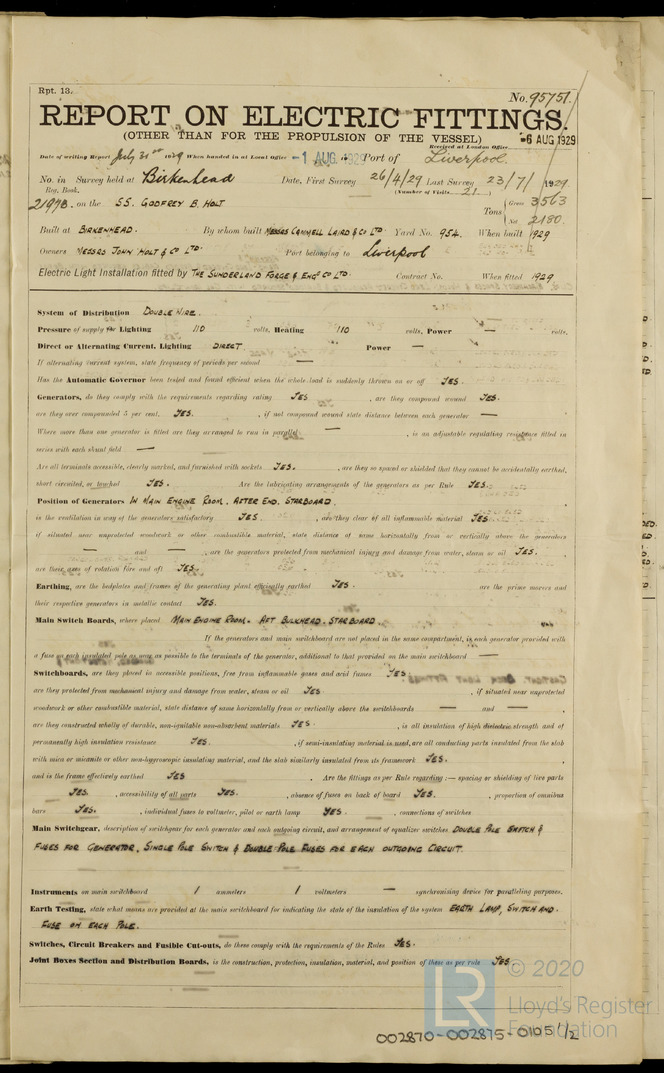 Rpt. 13.
No. 95751.
REPORT ON ELECTRIC FITTINGS.
(OTHER THAN FOR THE PROPULSION OF THE VESSEL)
Received at London Office -6 AUG 1929
Date of writing Report July 31st 1929 When handed in at Local Office -1 AUG. 1929 Port of Liverpool.
No. in Survey held at Birkenhead Date, First Survey 26/4/29 Last Survey 23/7/1929
Reg. Book. (Number of Visits 21)
21978. on the SS. GODFREY B. HOLT Tons { Gross 3563
Net 2180
Built at BIRKENHEAD. By whom built MESSRS CAMMELL LAIRD & CO LTD. Yard No. 954. When built 1929
Owners MESSRS JOHN HOLT & CO LTD. Port belonging to Liverpool
Electric Light Installation fitted by THE SUNDERLAND FORGE & ENGG CO LTD. Contract No. When fitted 1929
System of Distribution DOUBLE WIRE.
Pressure of supply for Lighting 110 volts, Heating 110 volts, Power — volts.
Direct or Alternating Current, Lighting DIRECT Power —
If alternating current system, state frequency of periods per second —
Has the Automatic Governor been tested and found efficient when the whole load is suddenly thrown on or off YES.
Generators, do they comply with the requirements regarding rating YES , are they compound wound YES.
are they over compounded 5 per cent. YES. , if not compound wound state distance between each generator —
Where more than one generator is fitted are they arranged to run in parallel — , is an adjustable regulating resistance fitted in
series with each shunt field —
Are all terminals accessible, clearly marked, and furnished with sockets YES. , are they so spaced or shielded that they cannot be accidentally earthed,
short circuited, or touched YES. Are the lubricating arrangements of the generators as per Rule YES.
Position of Generators IN MAIN ENGINE ROOM. AFTER END. STARBOARD.
is the ventilation in way of the generators satisfactory YES. , are they clear of all inflammable material YES
if situated near unprotected woodwork or other combustible material, state distance of same horizontally from or vertically above the generators
— and — , are the generators protected from mechanical injury and damage from water, steam or oil YES.
are their axes of rotation fore and aft YES.
Earthing, are the bedplates and frames of the generating plant efficiently earthed YES. are the prime movers and
their respective generators in metallic contact YES.
Main Switch Boards, where placed MAIN ENGINE ROOM. AFT BULKHEAD. STARBOARD.
If the generators and main switchboard are not placed in the same compartment, is each generator provided with
a fuse on each insulated pole as near as possible to the terminals of the generator, additional to that provided on the main switchboard —
Switchboards, are they placed in accessible positions, free from inflammable gases and acid fumes YES
are they protected from mechanical injury and damage from water, steam or oil YES , if situated near unprotected
woodwork or other combustible material, state distance of same horizontally from or vertically above the switchboards — and — ,
are they constructed wholly of durable, non-ignitable non-absorbent materials YES. , is all insulation of high dielectric strength and of
permanently high insulation resistance YES. , if semi-insulating material is used, are all conducting parts insulated from the slab
with mica or micanite or other non-hygroscopic insulating material, and the slab similarly insulated from its framework YES. ,
and is the frame effectively earthed YES . Are the fittings as per Rule regarding :— spacing or shielding of live parts
YES. , accessibility of all parts YES. , absence of fuses on back of board YES. , proportion of omnibus
bars YES. , individual fuses to voltmeter, pilot or earth lamp YES. , connections of switches
Main Switchgear, description of switchgear for each generator and each outgoing circuit, and arrangement of equalizer switches DOUBLE POLE SWITCH &
FUSES FOR GENERATOR, SINGLE POLE SWITCH & DOUBLE POLE FUSES FOR EACH OUTGOING CIRCUIT.
Instruments on main switchboard 1 ammeters 1 voltmeters — synchronising device for paralleling purposes.
Earth Testing, state what means are provided at the main switchboard for indicating the state of the insulation of the system EARTH LAMP, SWITCH AND
FUSE ON EACH POLE.
Switches, Circuit Breakers and Fusible Cut-outs, do these comply with the requirements of the Rules YES.
Joint Boxes Section and Distribution Boards, is the construction, protection, insulation, material, and position of these as per rule YES
LR
© 2020
Lloyd's Register
Foundation
002870-002875-0165 1/2